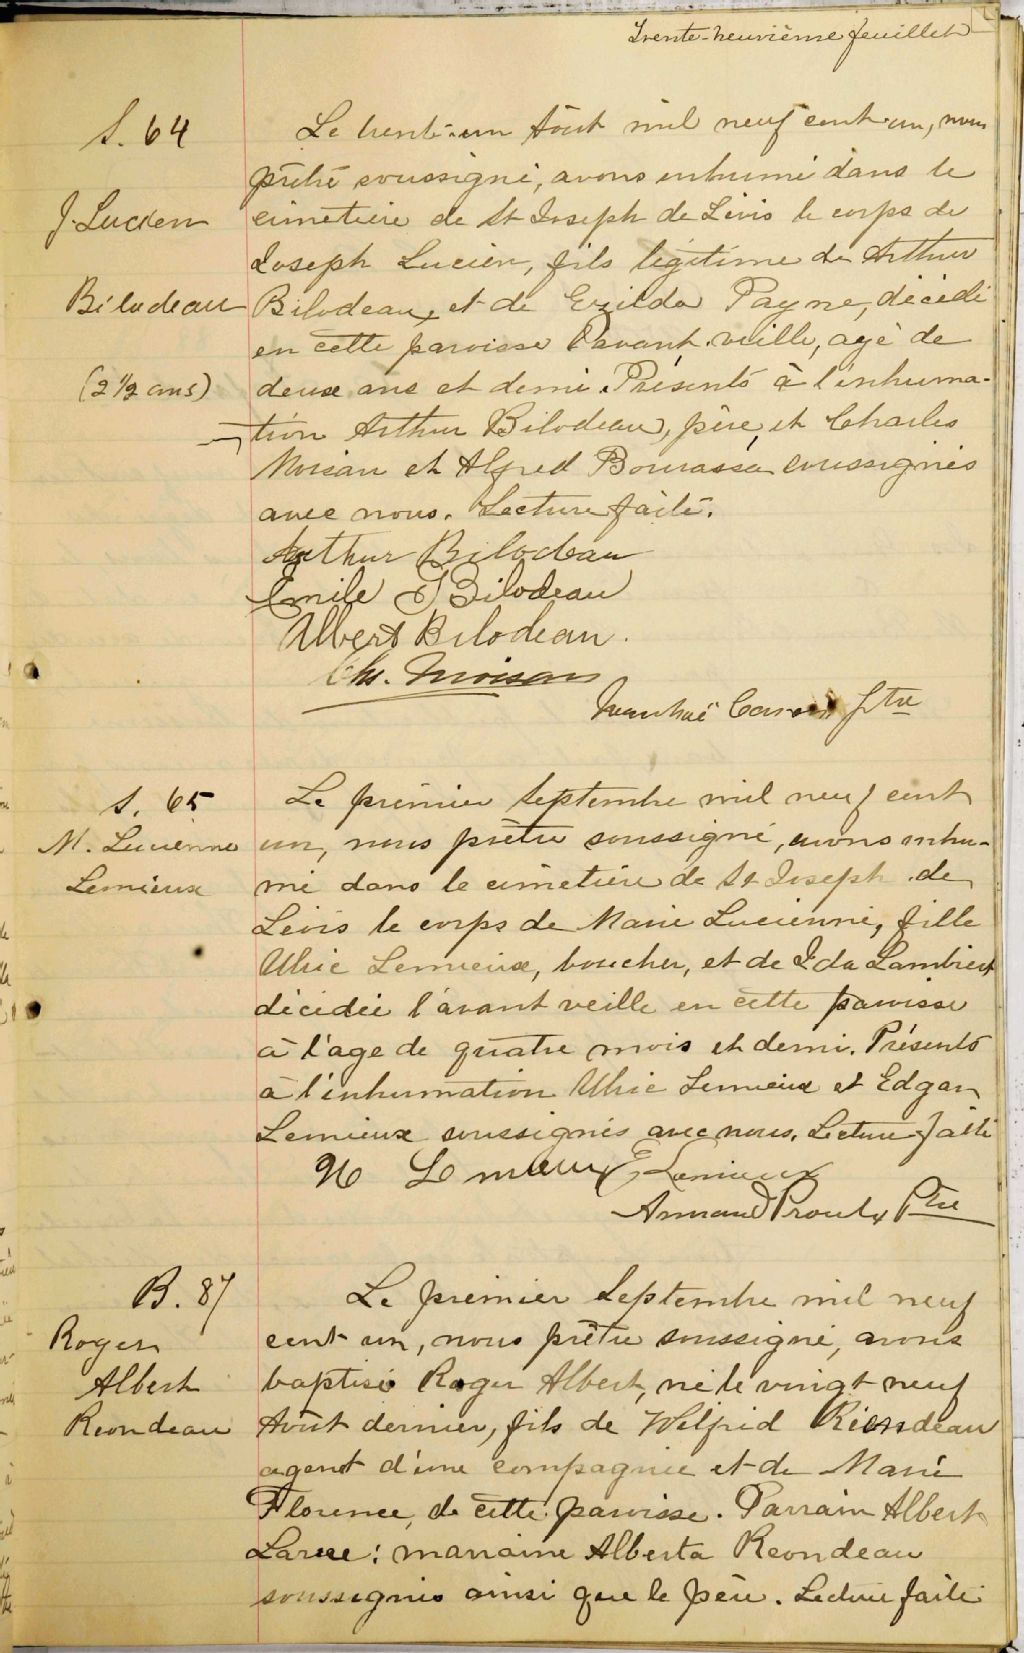 Trente-neuvième feuillet
S. 64
J. Lucien
Bilodeau
(2 1/2 ans)
Le trente-un Août mil neuf cent un, nous
prêtre soussigné, avons inhumé dans le
cimetière de St Joseph de Lévis le corps de
Joseph Lucien, fils légitime de Arthur
Bilodeau, et de Ezilda Payne, décédé
en cette paroisse l'avant-veille, agé de
deux ans et demi. Présents à l'inhuma-
tion Arthur Bilodeau, père, et Charles
Moisan et Alfred Bourassa soussignés
avec nous. Lecture faite.
Arthur Bilodeau
Emile J Bilodeau
Albert Bilodeau.
Chs. Moisan
Caron Ptre
S. 65
M. Lucienne
Lemieux
Le premier Septembre mil neuf cent
un, nous prêtre soussigné, avons inhu-
mé dans le cimetière de St Joseph de
Lévis le corps de Marie Lucienne, fille
Ulric Lemieux, boucher, et de Ida Lambert
décédée l'avant veille en cette paroisse
à l'age de quatre mois et demi. Présents
à l'inhumation Ulric Lemieux et Edgar
Lemieux soussignés avec nous. Lecture faite
Lemieux E Lemieux
Armand Proulx Ptre
B. 87
Roger
Albert
Reondeau
Le premier Septembre mil neuf
cent un, nous prêtre soussigné, avons
baptisé Roger Albert, né le vingt neuf
Août dernier, fils de Wilfrid Riondeau
agent d'une compagnie et de Marie
Florence, de cette paroisse. Parrain Albert
Larue: marraine Alberta Reondeau
soussignés ainsi que le père. Lecture faite